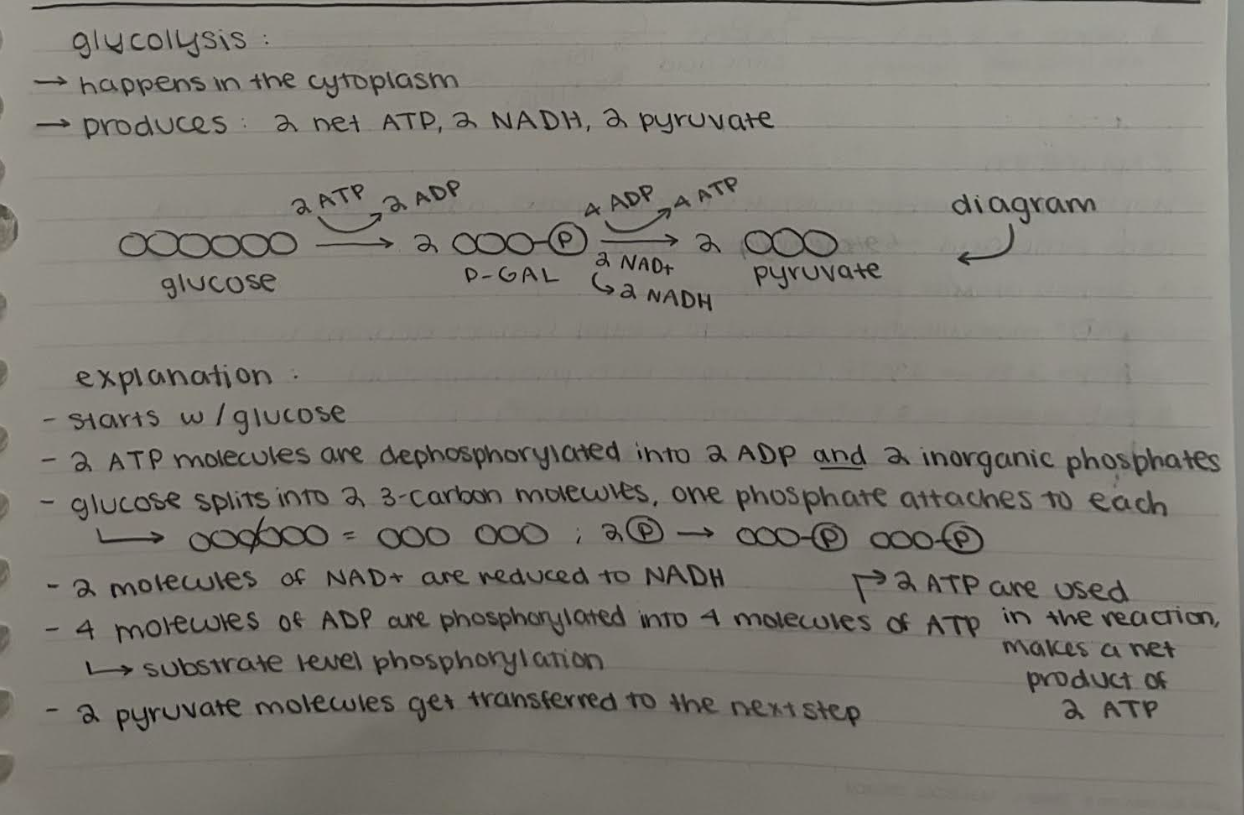 glycolysis :
→ happens in the cytoplasm
→ produces : 2 net ATP, 2 NADH, 2 pyruvate
2 ATP 2 ADP 4 ADP 4 ATP diagram
→ 2 OOO-Ⓟ → 2 OOO
glucose D-GAL 2 NAD+ pyruvate
↳ 2 NADH
explanation :
- starts w/glucose
- 2 ATP molecules are dephosphorylated into 2 ADP and 2 inorganic phosphates
- glucose splits into 2, 3-carbon molecules, one phosphate attaches to each
↳ OOO/OOO = OOO OOO ; 2Ⓟ → OOO-Ⓟ OOO-Ⓟ
- 2 molecules of NAD+ are reduced to NADH
- 4 molecules of ADP are phosphorylated into 4 molecules of ATP
↳ substrate level phosphorylation
- 2 pyruvate molecules get transferred to the next step
↱ 2 ATP are used
in the reaction,
makes a net
product of
2 ATP